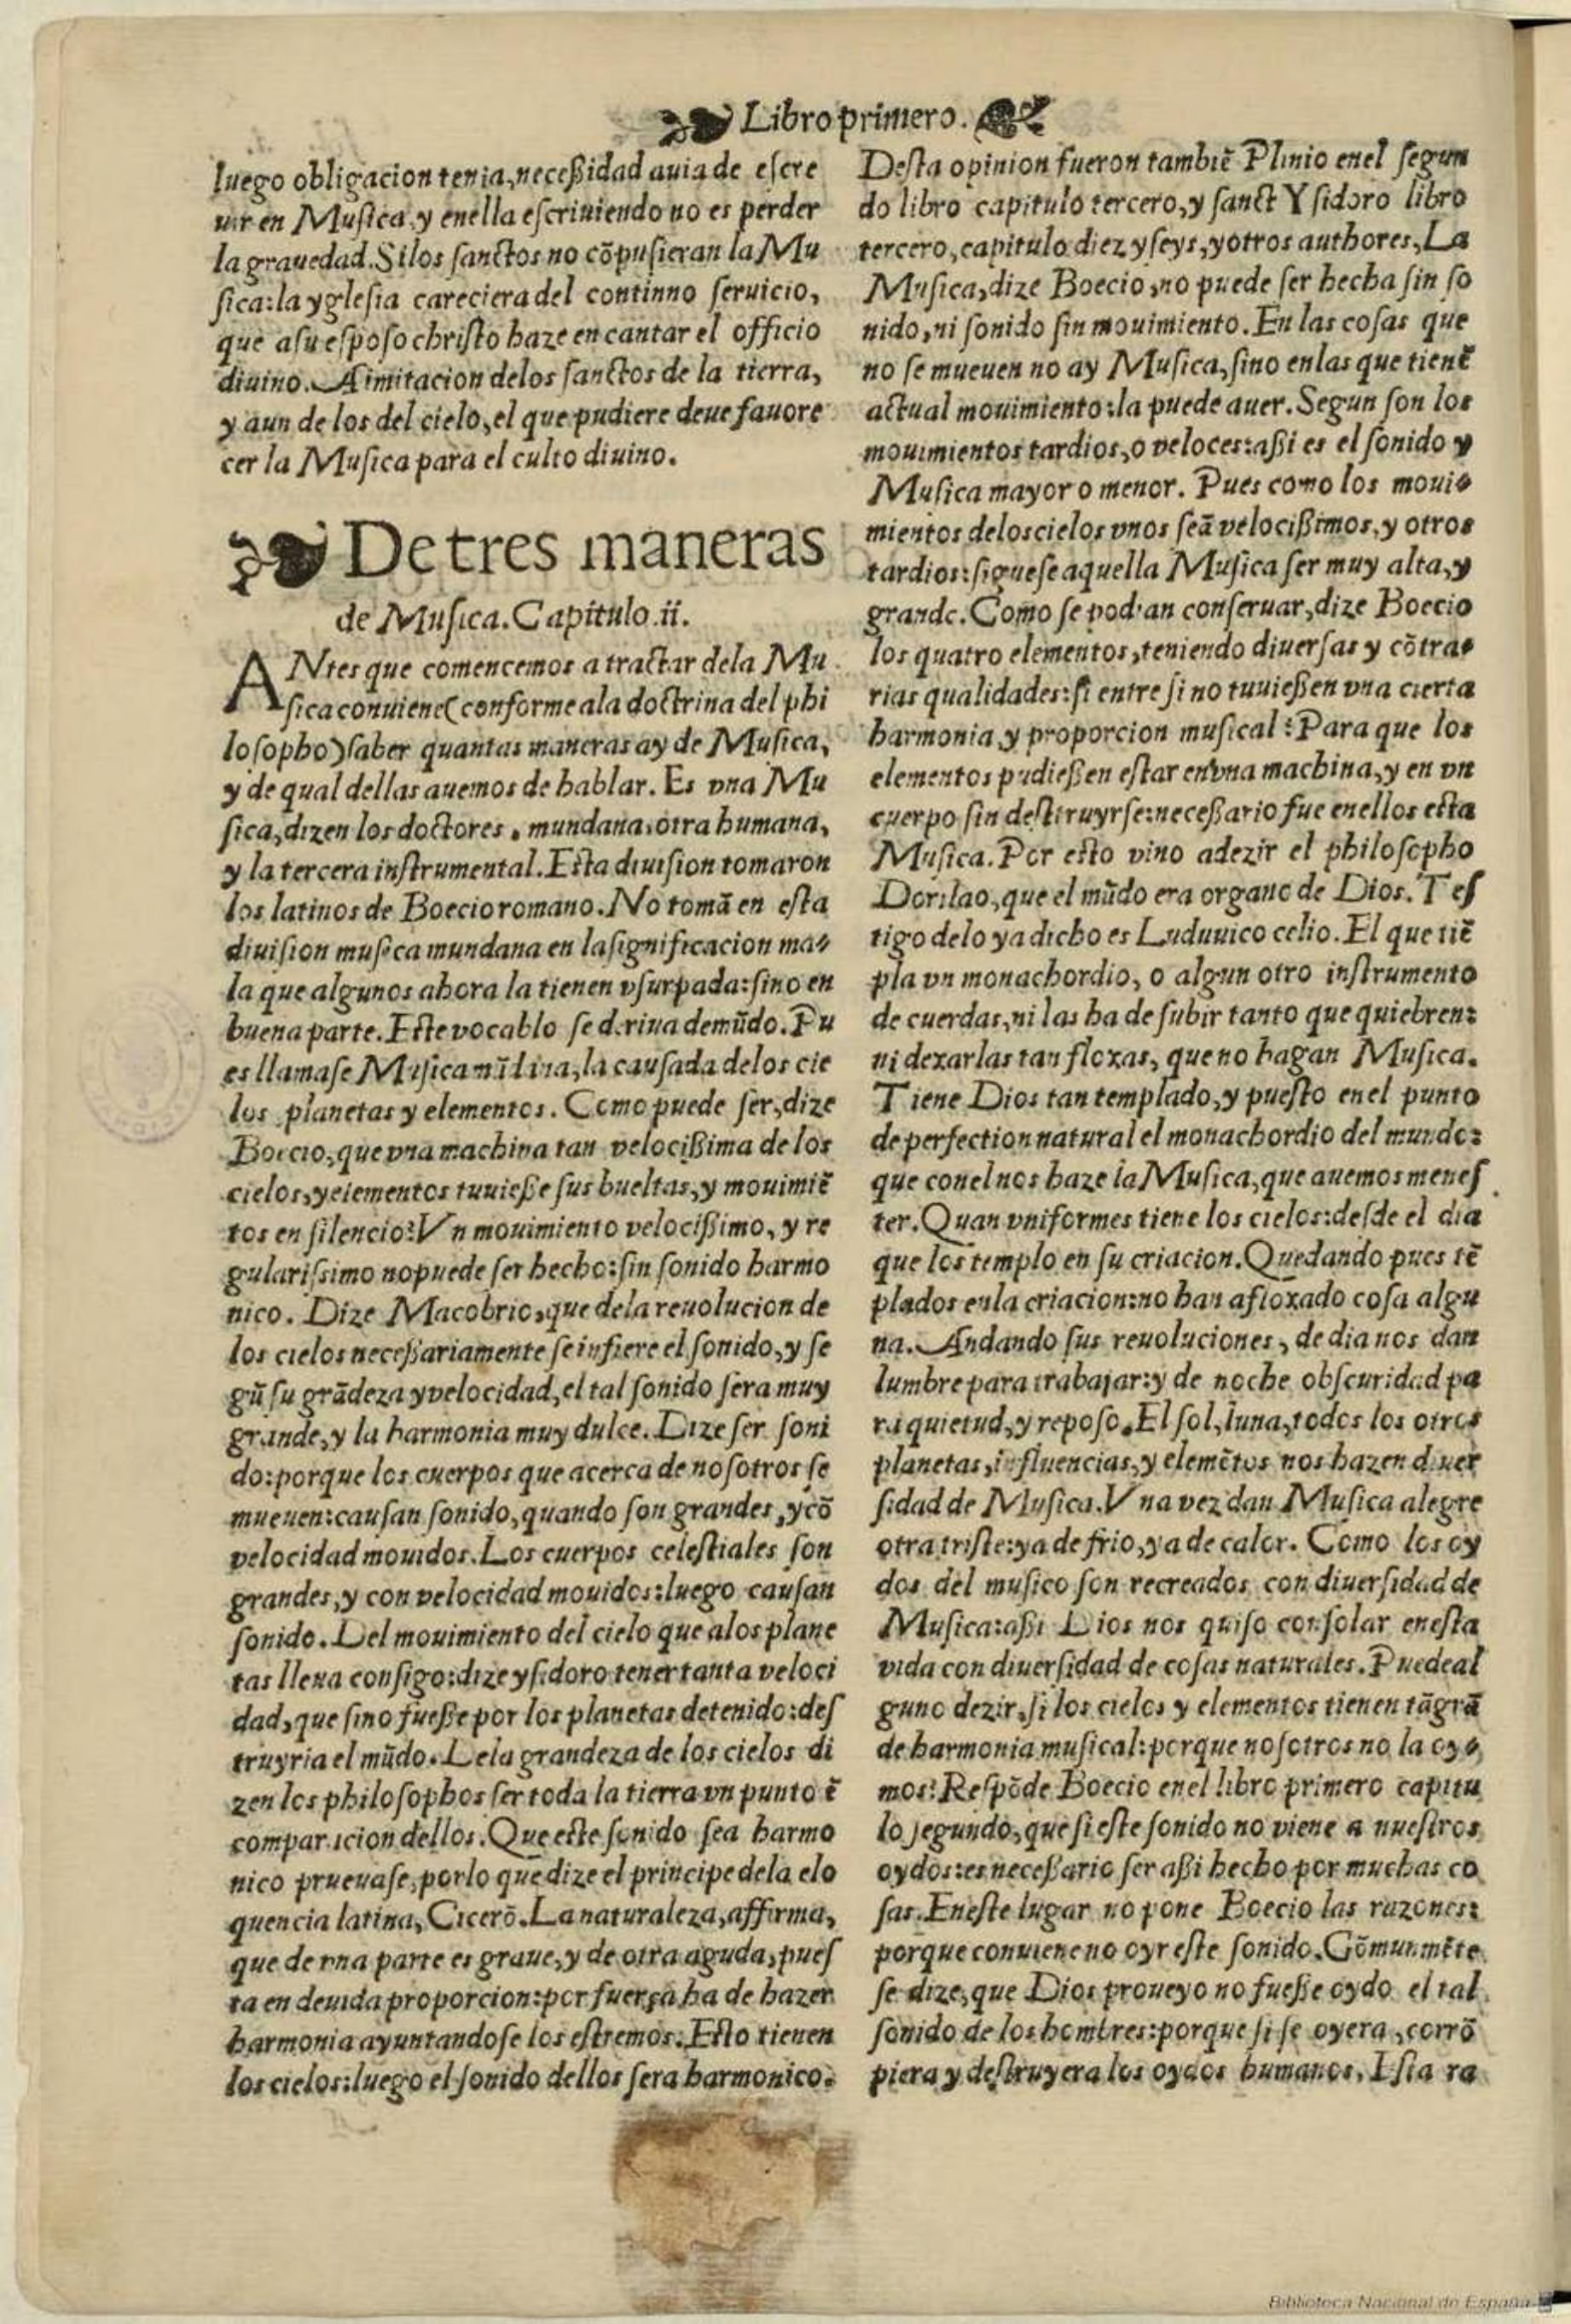 Libro primero.
luego obligacion tenia, neceßidad auia de eſcre
uir en Muſica y enella eſcriuiendo no es perder
la grauedad. Si los ſanctos no cõpuſieran la Mu
ſica: la ygleſia careciera del continno ſeruicio,
que aſu eſpoſo chriſto haze en cantar el officio
diuino. A imitacion delos ſanctos de la tierra,
y aun de los del cielo, el que pudiere deue fauore
cer la Muſica para el culto diuino.
De tres maneras
de Muſica. Capitulo .ii.
ANtes que comencemos a tractar dela Mu
ſica conuiene (conforme ala doctrina del phi
loſopho) ſaber quantas maneras ay de Muſica,
y de qual dellas auemos de hablar. Es vna Mu
ſica, dizen los doctores, mundana, otra humana,
y la tercera inſtrumental. Eſta diuiſion tomaron
los latinos de Boecio romano. No tomã en eſta
diuiſion muſica mundana en la ſignificacion ma-
la que algunos ahora la tienen vſurpada: ſino en
buena parte. Eſte vocablo ſe deriua de mũdo. Pu
es llamaſe Muſica mũdana, la cauſada delos cie
los planetas y elementos. Como puede ſer, dize
Boecio, que vna machina tan velocißima de los
cielos, y elementos tuuieße ſus bueltas, y mouimiẽ
tos en ſilencio? Vn mouimiento velocißimo, y re
gulariſsimo no puede ſer hecho: ſin ſonido harmo
nico. Dize Macobrio, que dela reuolucion de
los cielos neceßariamente ſe infiere el ſonido, y ſe
gũ ſu grãdeza y velocidad, el tal ſonido ſera muy
grande, y la harmonia muy dulce. Dize ſer ſoni
do: porque los cuerpos que acerca de noſotros ſe
mueuen: cauſan ſonido, quando ſon grandes, y cõ
velocidad mouidos. Los cuerpos celeſtiales ſon
grandes, y con velocidad mouidos: luego cauſan
ſonido. Del mouimiento del cielo que alos plane
tas lleua conſigo: dize yſidoro tener tanta veloci
dad, que ſino fueße por los planetas detenido: deſ
truyria el mũdo. Dela grandeza de los cielos di
zen los philoſophos ſer toda la tierra vn punto ẽ
comparacion dellos. Que eſte ſonido ſea harmo
nico prueuaſe, por lo que dize el principe dela elo
quencia latina, Cicerõ. La naturaleza, affirma,
que de vna parte es graue, y de otra aguda, pueſ
ta en deuida proporcion: por fuerça ha de hazer
harmonia ayuntandoſe los eſtremos. Eſto tienen
los cielos: luego el ſonido dellos ſera harmonico.
Deſta opinion fueron tambiẽ Plinio enel ſegun
do libro capitulo tercero, y ſanct Yſidoro libro
tercero, capitulo diez y ſeys, y otros authores, La
Muſica, dize Boecio, no puede ſer hecha ſin ſo
nido, ni ſonido ſin mouimiento. En las coſas que
no ſe mueuen no ay Muſica, ſino enlas que tienẽ
actual mouimiento: la puede auer. Segun ſon los
mouimientos tardios, o veloces: aßi es el ſonido y
Muſica mayor o menor. Pues como los moui-
mientos delos cielos vnos ſeã velocißimos, y otros
tardios: ſigueſe aquella Muſica ſer muy alta, y
grande. Como ſe podian conſeruar, dize Boecio
los quatro elementos, teniendo diuerſas y cõtra-
rias qualidades: ſi entre ſi no tuuießen vna cierta
harmonia y proporcion muſical? Para que los
elementos pudießen eſtar en vna machina, y en vn
cuerpo ſin deſtruyrſe: neceßario fue enellos eſta
Muſica. Por eſto vino adezir el philoſopho
Dorilao, que el mũdo era organo de Dios. Teſ
tigo delo ya dicho es Luduuico celio. El que tiẽ
pla vn monachordio, o algun otro inſtrumento
de cuerdas, ni las ha de ſubir tanto que quiebren:
ni dexarlas tan floxas, que no hagan Muſica.
Tiene Dios tan templado, y pueſto enel punto
de perfection natural el monachordio del mundo:
que conel nos haze la Muſica, que auemos meneſ
ter. Quan vniformes tiene los cielos: deſde el dia
que los templo en ſu criacion. Quedando pues tẽ
plados enla criacion: no han afloxado coſa algu
na. Andando ſus reuoluciones, de dia nos dan
lumbre para trabajar: y de noche obſcuridad pa
ra quietud, y repoſo. El ſol, luna, todos los otros
planetas, influencias, y elemẽtos nos hazen diuer
ſidad de Muſica. Vna vez dan Muſica alegre
otra triſte: ya de frio, ya de calor. Como los oy
dos del muſico ſon recreados con diuerſidad de
Muſica: aßi Dios nos quiſo conſolar eneſta
vida con diuerſidad de coſas naturales. Puede al
guno dezir, ſi los cielos y elementos tienen tã grã
de harmonia muſical: porque noſotros no la oy-
mos? Reſpõde Boecio enel libro primero capitu
lo ſegundo, que ſi eſte ſonido no viene a nueſtros
oydos: es neceßario ſer aßi hecho por muchas co
ſas. Eneſte lugar no pone Boecio las razones:
porque conuiene no oyr eſte ſonido. Cõmunmẽte
ſe dize, que Dios proueyo no fueße oydo el tal
ſonido de los hombres: porque ſi ſe oyera, corrõ
piera y deſtruyera los oydos humanos. Eſta ra
Biblioteca Nacional de España